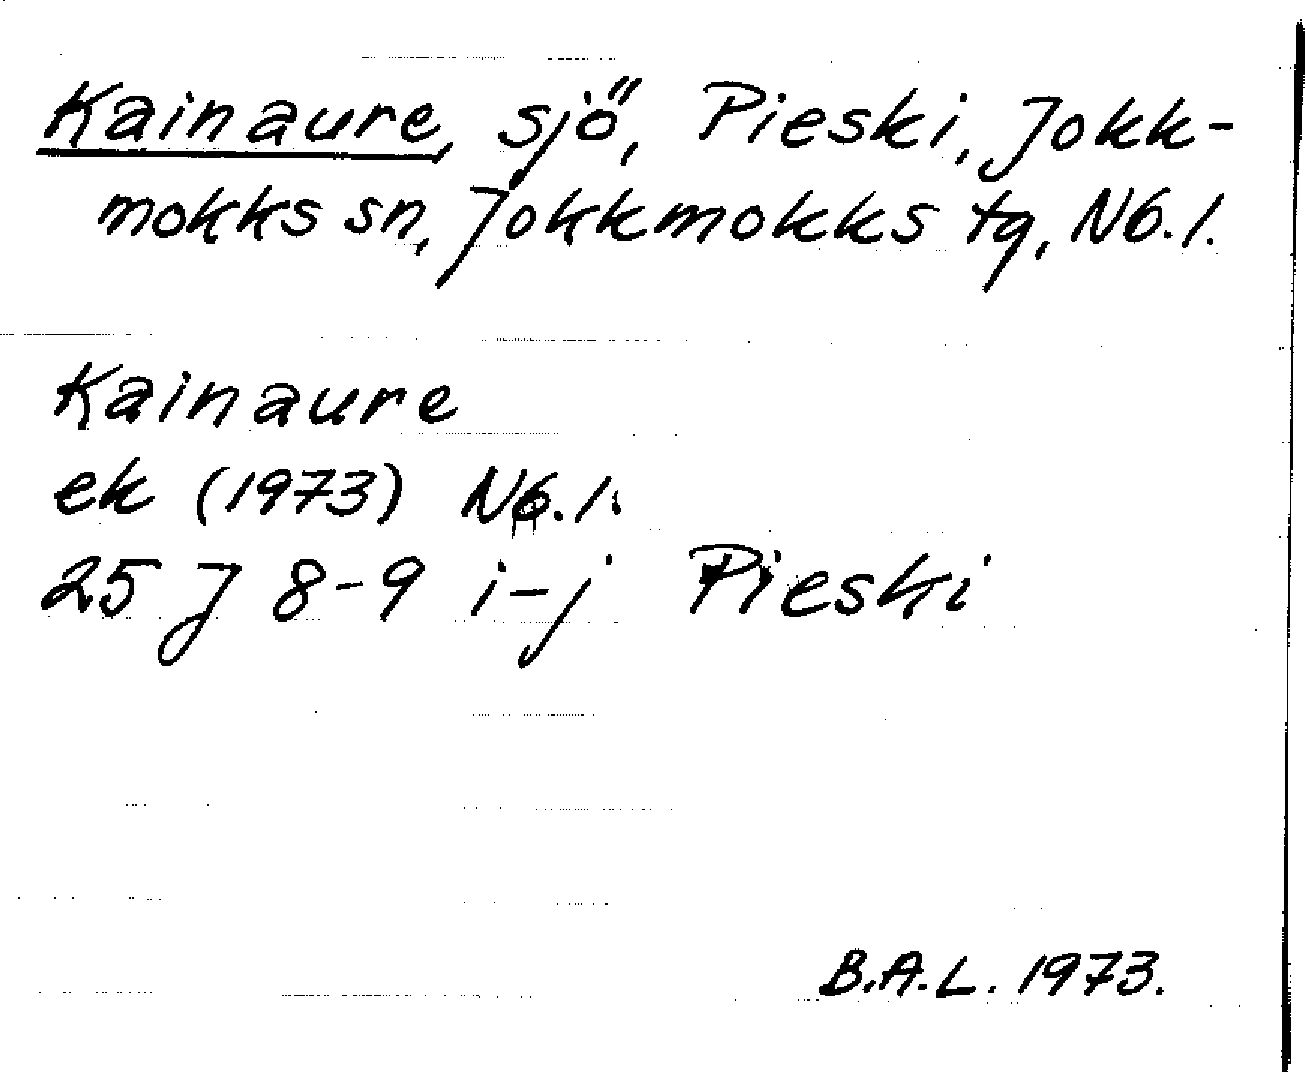 Kainaure, sjö, Pieski, Jokk-
mokks sn, Jokkmokks tg, Nb.l.
Kainaure
ek (1973) Nb.l.
25 J 8-9 i-j Pieski
B.A.L. 1973.